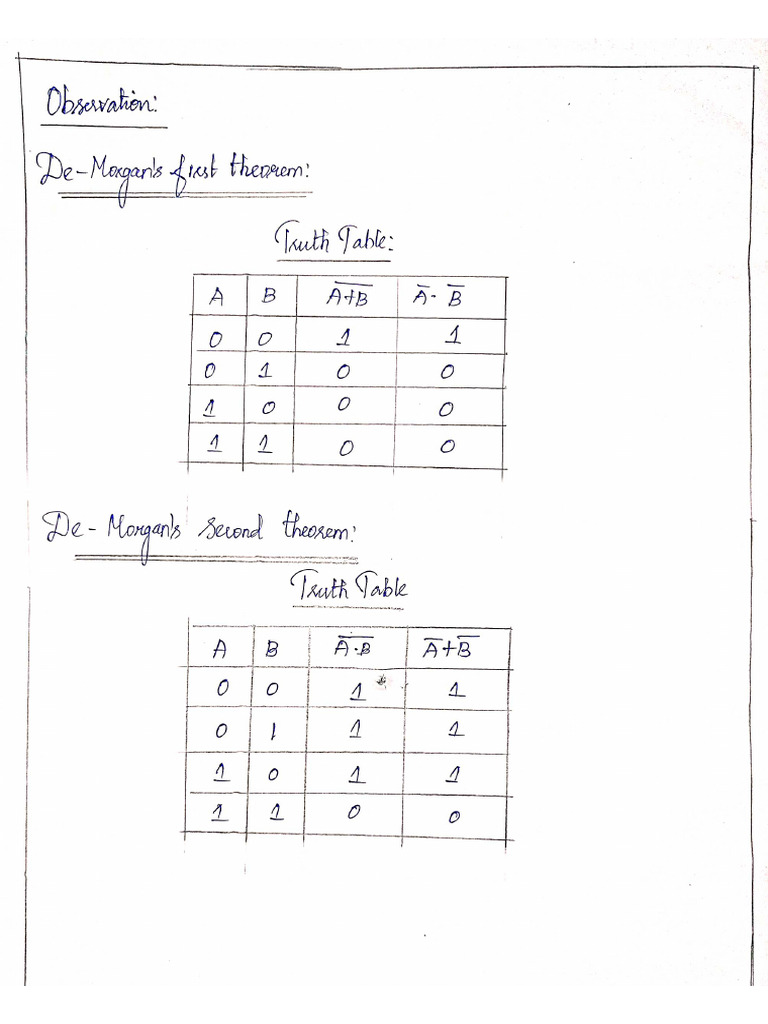 Observation:
De-Morgan's first theorem:
Truth Table:
A B A̅+̅B̅ A̅. B̅
0 0 1 1
0 1 0 0
1 0 0 0
1 1 0 0
De-Morgan's second theorem:
Truth Table
A B A̅.̅B̅ A̅+B̅
0 0 1 1
0 1 1 1
1 0 1 1
1 1 0 0